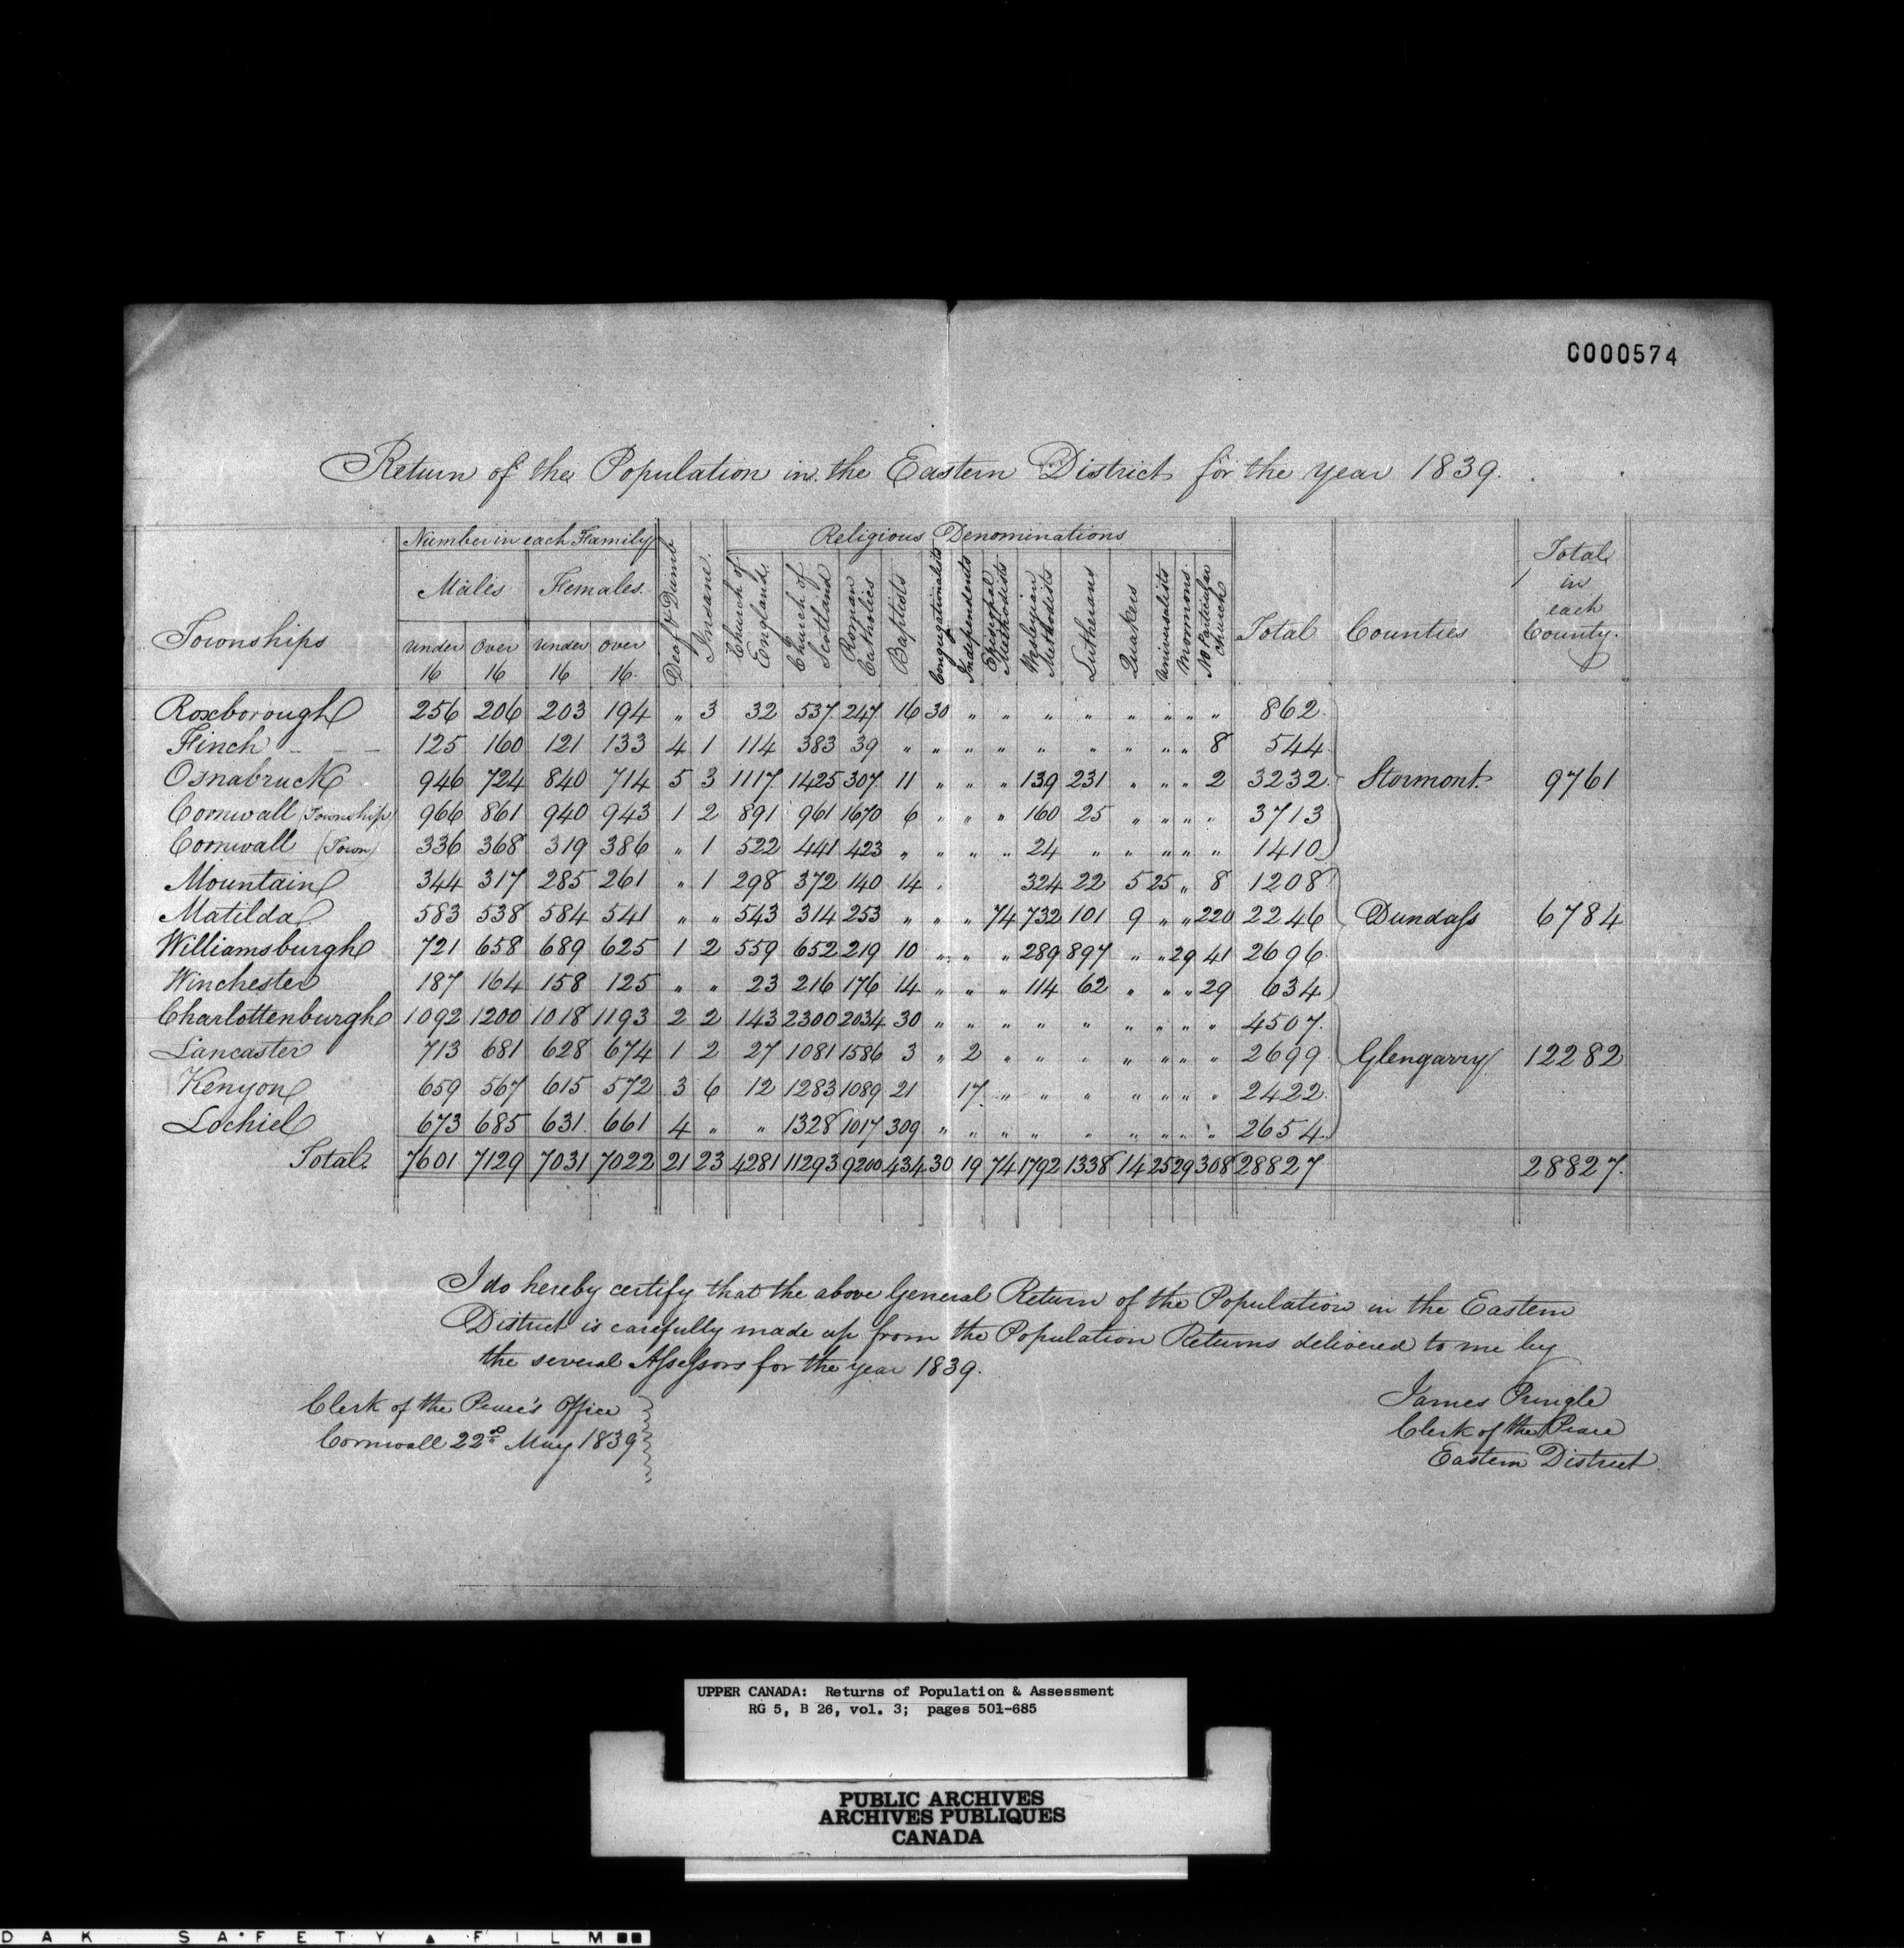 C000574
Return of the Population in the Eastern District for the year 1839.
Townships | Number in each Family | Deaf & Dumb | Insane. | Religious Denominations | Total | Counties | Total in each County.
Males | Females. | Church of England. | Church of Scotland | Roman Catholics | Baptists | Congregationalists | Independents | Episcopal Methodists | Wesleyian Methodists | Lutherans | Quakers | Universalists | Mormons | No Particular Church
under 16 | Over 16 | under 16 | over 16.
Roxborough 256 206 203 194 " 3 32 537 247 16 30 " " " " " " " " 862
Finch - - - 125 160 121 133 4 1 114 383 39 " " " " " " " " " 8 544
Osnabruck 946 724 840 714 5 3 1117 1425 307 11 " " " 139 231 " " " 2 3232 Stormont. 9761
Cornwall (Township) 966 861 940 943 1 2 891 961 1670 6 " " " 160 25 " " " " 3713
Cornwall (Town) 336 368 319 386 " 1 522 441 423 " " " " 24 " " " " " 1410
Mountain 344 317 285 261 " 1 298 372 140 14 " 324 22 5 25 " 8 1208
Matilda 583 538 584 541 " " 543 314 253 " " " 74 732 101 9 " " 220 2246 Dundass 6784
Williamsburgh 721 658 689 625 1 2 559 652 219 10 " " " 289 897 " " 29 41 2696
Winchester 187 164 158 125 " " 23 216 176 14 " " " 114 62 " " " 29 634
Charlottenburgh 1092 1200 1018 1193 2 2 143 2300 2034 30 " " " " " " " " " 4507
Lancaster 713 681 628 674 1 2 27 1081 1586 3 " 2 " " " " " " " 2699 Glengarry 12282
Kenyon 659 567 615 572 3 6 12 1283 1089 21 17 " " " " " " " 2422
Lochiel 673 685 631 661 4 " " 1328 1017 309 " " " " " " " " " 2654
Total. 7601 7129 7031 7022 21 23 4281 11293 9200 434 30 19 74 1792 1338 14 25 29 308 28827 28827.
I do hereby certify that the above General Return of the Population in the Eastern
District is carefully made up from the Population Returns delivered to me by
the several Assessors for the year 1839.
Clerk of the Peace's Office
Cornwall 22d May 1839
James Pringle
Clerk of the Peace
Eastern District
UPPER CANADA: Returns of Population & Assessment
RG 5, B 26, vol. 3; pages 501-685
PUBLIC ARCHIVES
ARCHIVES PUBLIQUES
CANADA
DAK SAFETY FILM